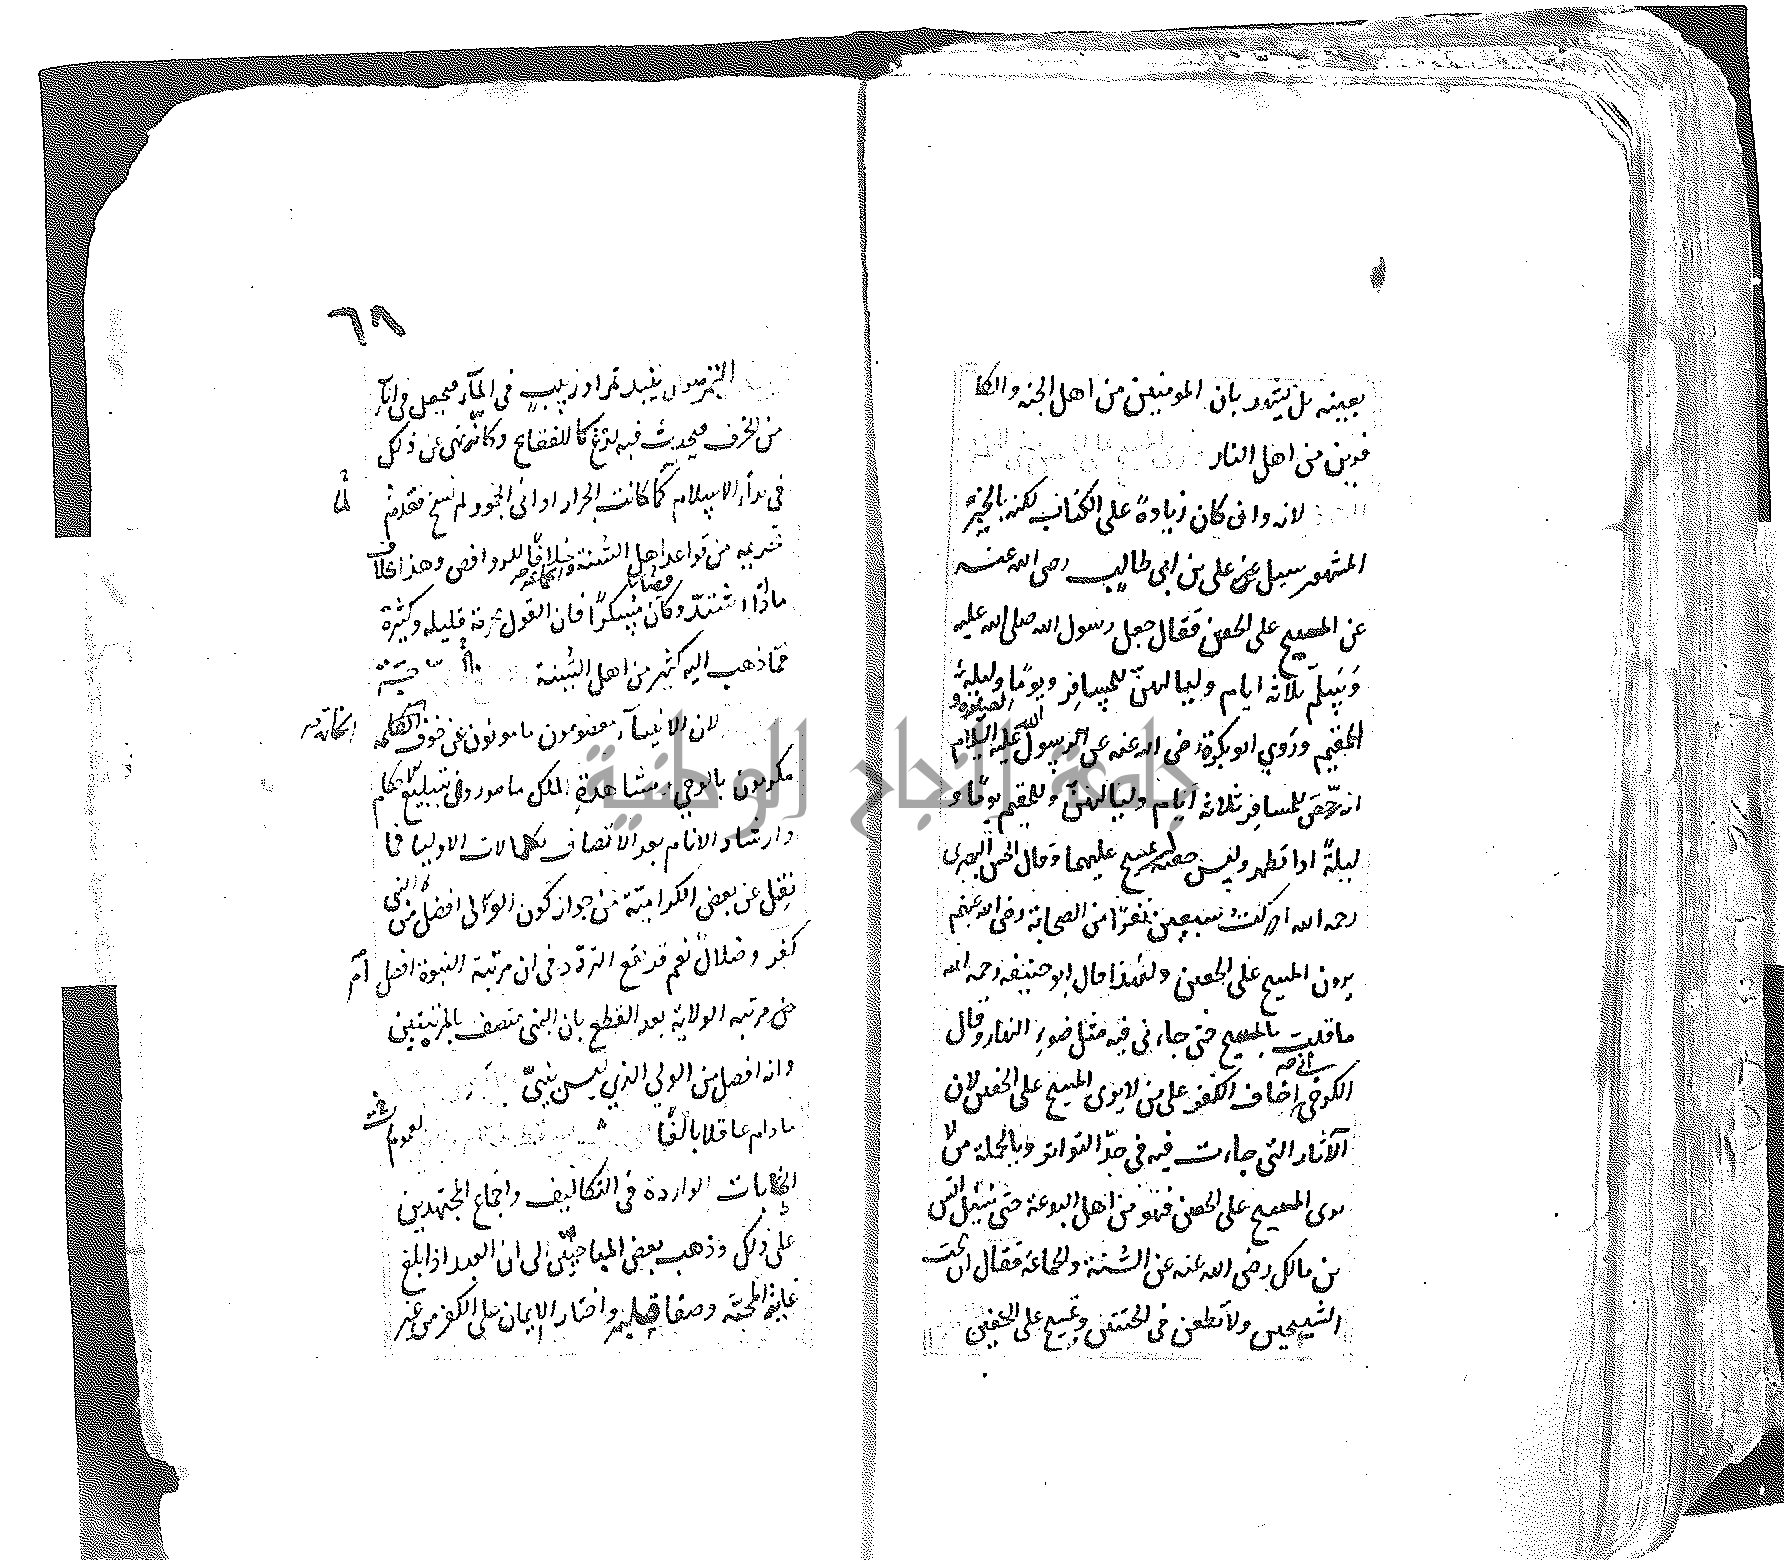 بعينه بل نشهد بان المومنين من اهل الجنة والكا
فرين من اهل النار
لانه وان كان زيادة على الكتاب لكنه بالخبر
المشهور سيل عن على بن ابى طالب رضى الله عنه
عن المسح على الخفين فقال جعل رسول الله صلى الله عليه
وسلم ثلاثة ايام ولياليهن للمسافر ويوما وليلة
للمقيم وروي ابو بكرة رضى الله عنه عن رسول الله عليه الصلوة والسلام
انه رخص للمسافر ثلاثة ايام ولياليهن وللمقيم يوما و
ليلة اذا تطهر ولبس خفيه ان يمسح عليهما وقال الحسن البصرى
رحمه الله ادركت سبعين نفرا من الصحابة رضى الله عنهم
يرون المسح على الخفين ولهذا قال ابو حنيفه رحمه الله
ما قلت بالمسح حتى جاءنى فيه مثل ضوء النهار وقال
الكرخى انى اخاف الكفر على من لا يرى المسح على الخفين لان
الآثار التى جاءت فيه فى حد التواتر وبالجملة من لا
يرى المسح على الخفين فهو من اهل البدعة حتى سئل انس
بن مالك رضى الله عنه عن السنة والجماعة فقال ان تحب
الشيخين ولا تطعن فى الختنين وتمسح على الخفين
٦٨
التمر هو ان ينبذ تمر او زبيب فى المآء فيجعل فى انآء
من الخزف فيحدث فيه لذغ كما للفقاع وكانه نهى عن ذلك
فى بدأ الاسلام لما كانت الجرار اوانى الخمور ثم نسخ فعدم
تحريمه من قواعد اهل السنة والجماعة خلافا للروافض وهذا بخلاف
ما اذا اشتد وكان فصار مسكرا فان القول بحرمة قليله وكثيره
مما ذهب اليه كثير من اهل السنة
لان الانبيآء معصومون مامونون عن خوف الخاتمة
مكرمون بالوحي ومشاهدة الملك مامورون بتبليغ الاحكام
وارشاد الانام بعد الاتصاف بكمالات الاوليا فما
نقل عن بعض الكرامية من جواز كون الولى افضل من النبي
كفر وضلال نعم قد يقع التردد فى ان مرتبة النبوة افضل ام
من مرتبه الولاية بعد القطع بان النبى متصف بالمرتبتين
وانه افضل من الولي الذي ليس بنبيّ
ما دام عاقلا بالغا
لعموم
الخطابات الواردة فى التكاليف واجماع المجتهدين
على ذلك وذهب بعض المباحيين الى ان العبد اذا بلغ
غاية المحبة وصفا قلبه واختار الايمان على الكفر من غير
جامعة النجاح الوطنية